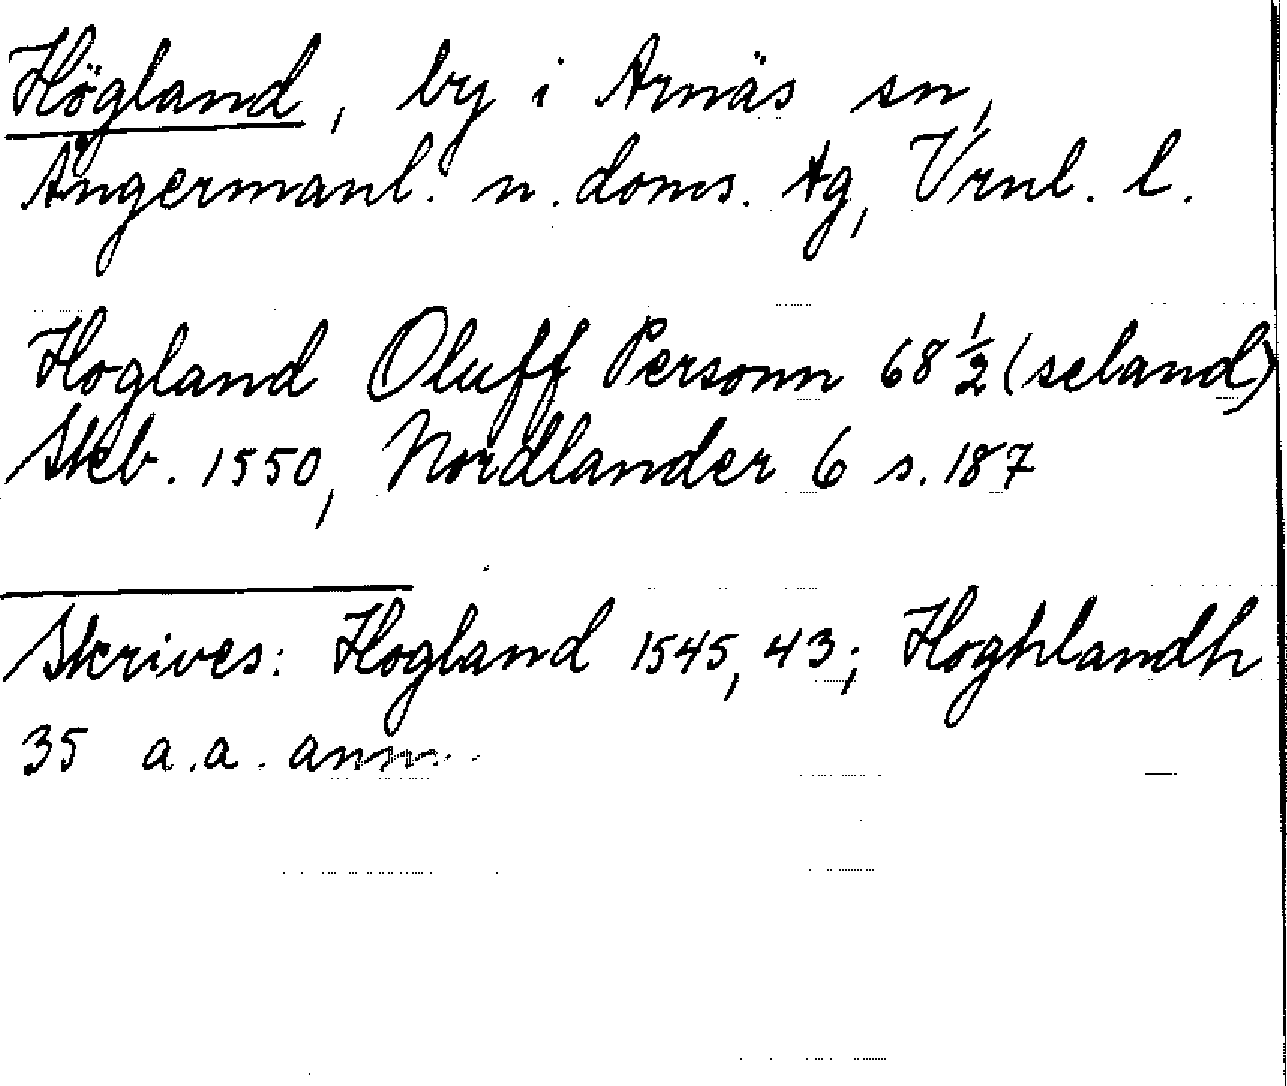 Högland, by i Arnäs sn,
Ångermanl. n. doms. Ag, Vrnl. l.
Hogland Oluff Personn 68 ½ (seland)
Skb. 1550, Nordlander 6 s. 187
Skrives: Hogland 1545, 43; Hoghlandh
35 a.a. anm.